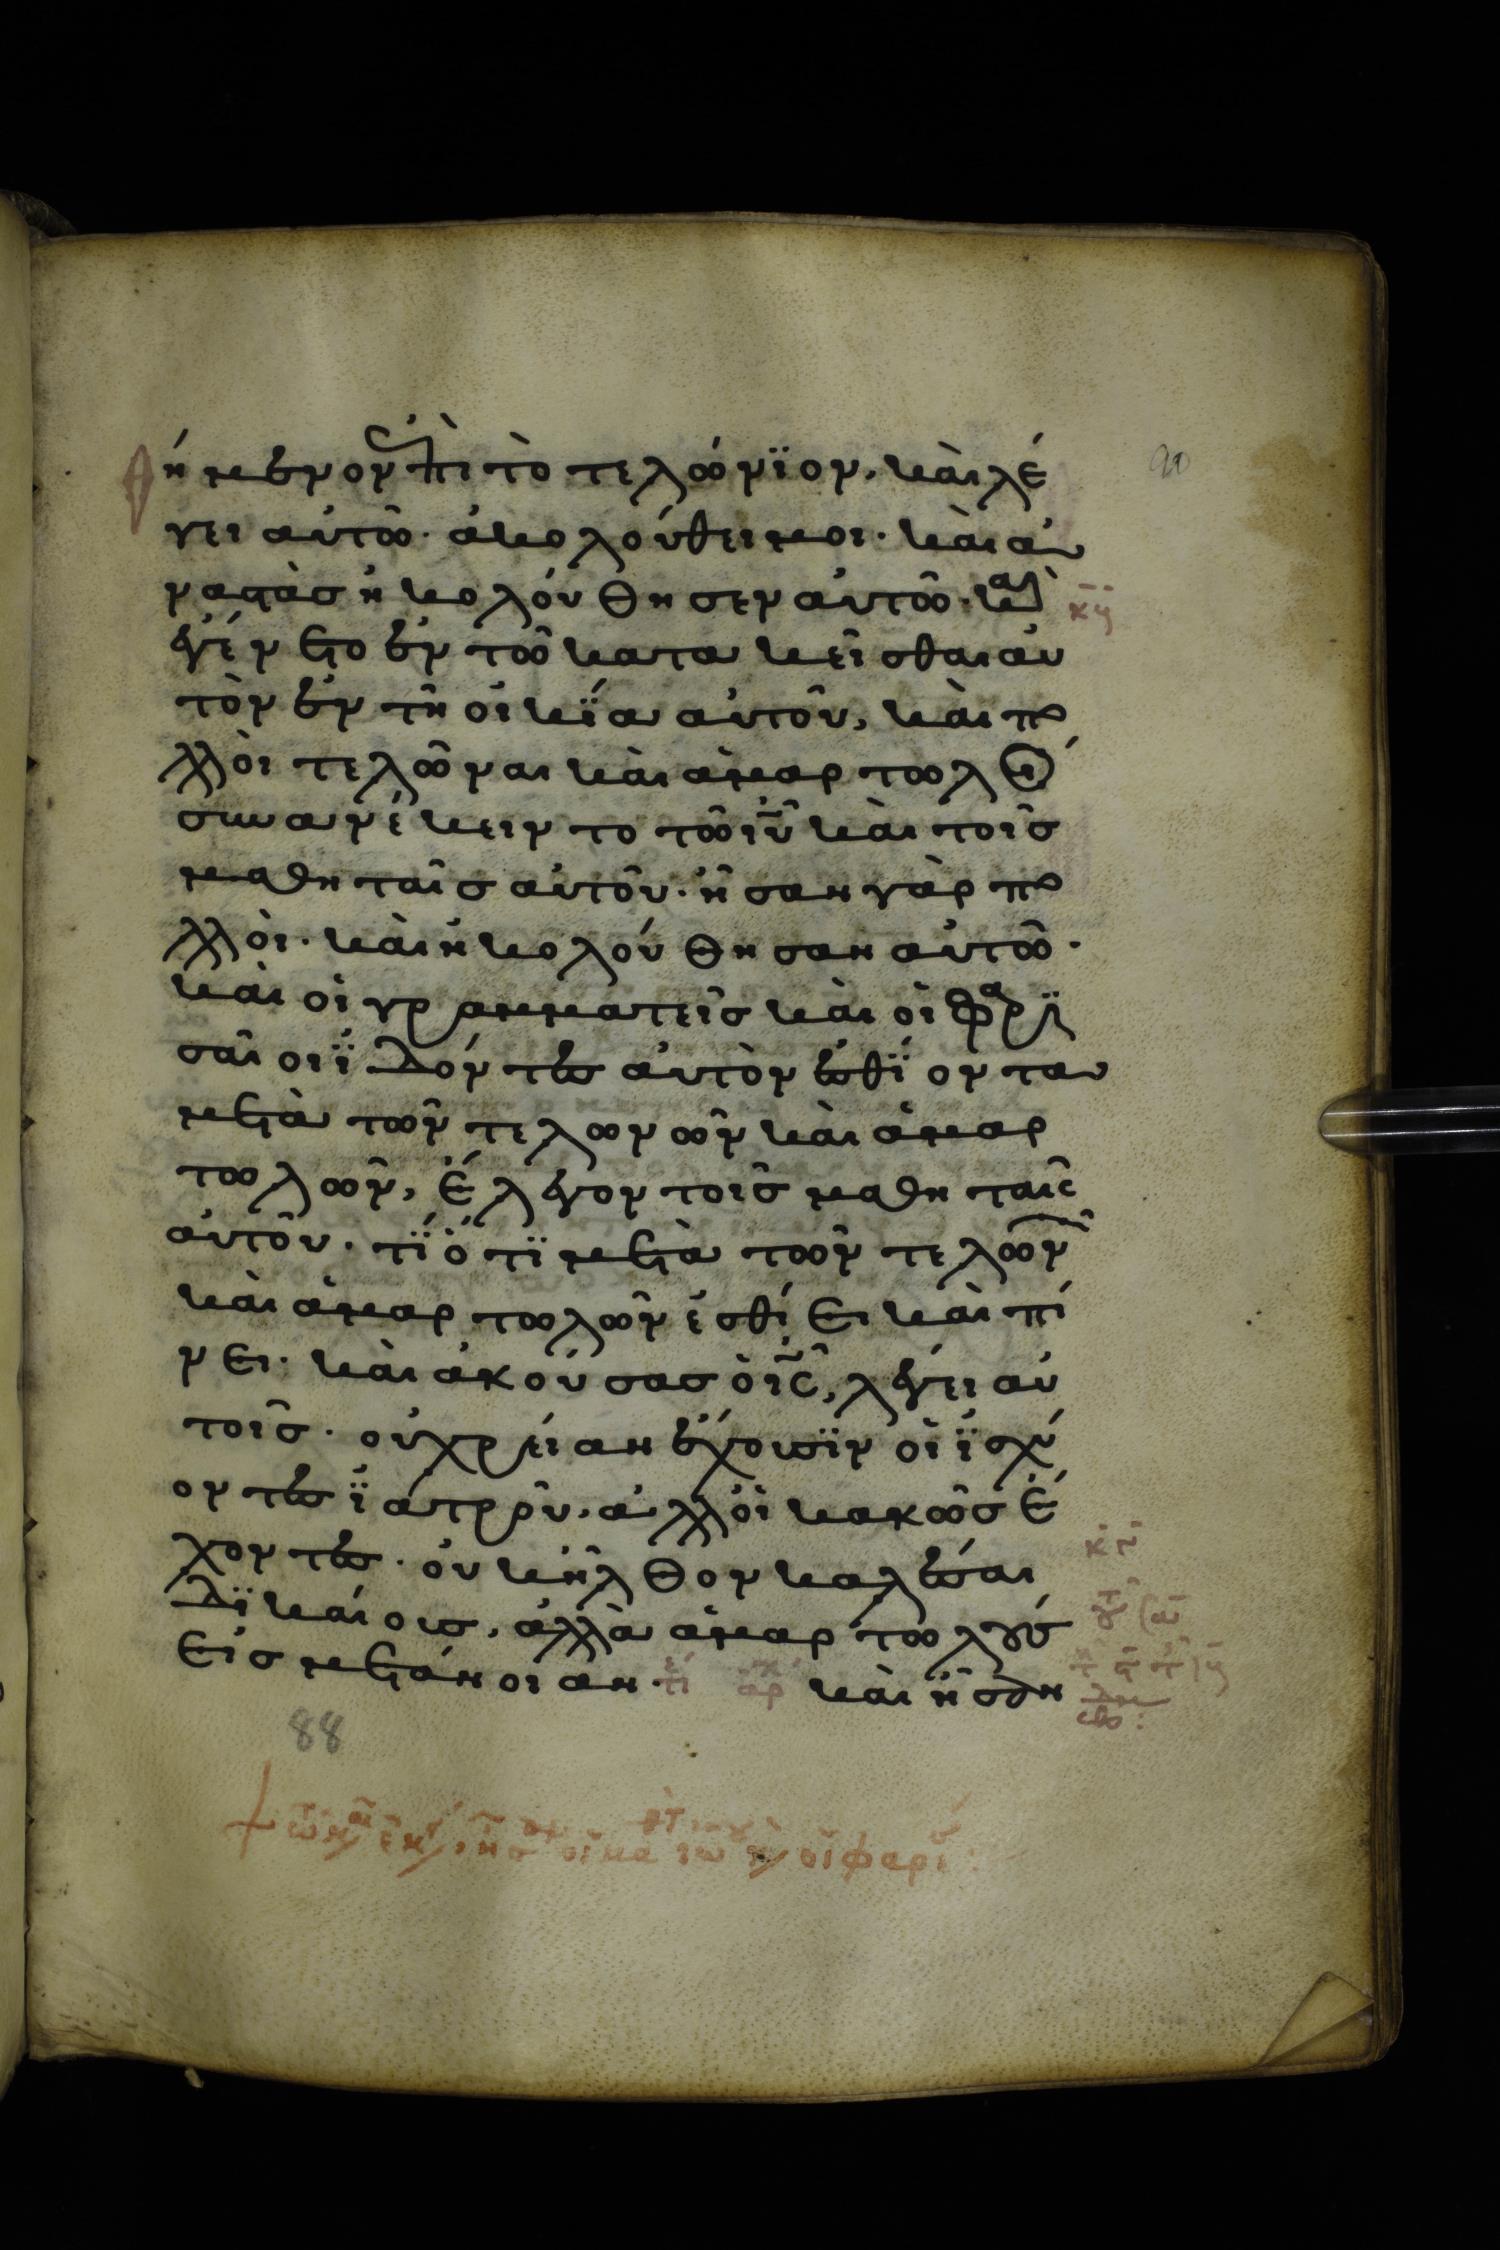 ήμενον ἐπὶ τὸ τελώνϊον, καὶ λέ
γει αὐτῶ· ἀκολούθει μοι· καὶ ἀ
ναστὰσ ἠκολούθησεν αὐτῶ· καὶ
ἐγένετο ἐν τῶ κατακεῖσθαι αὐ
τὸν ἐν τῆ οἰκΐα αὐτοῦ, καὶ πο
λλοὶ τελῶναι καὶ ἁμαρτωλοί
συνανέκειντο τῶ ιῦ καὶ τοῖσ
μαθηταῖσ αὐτοῦ· ἦσαν γὰρ πο
λλοὶ· καὶ ἠκολούθησαν αὐτῶ·
καὶ οἱ γραμματεῖσ καὶ οἱ φαρϊ
σαῖοι ϊδόντεσ αὐτὸν ἐσθΐοντα
μετὰ τῶν τελωνῶν καὶ ἁμαρ
τωλῶν, ἔλεγον τοῖσ μαθηταῖσ
αὐτοῦ· τΐ ὅτϊ μετὰ τῶν τελωνῶν
καὶ ἁμαρτωλῶν ἐσθίει καὶ πί
νει· καὶ ἀκούσασ ὁ ισ, λέγει αὐ
τοῖσ· οὐ χρείαν ἔχουσϊν οἱ ϊσχύ
οντεσ ϊατροῦ, ἀλλ οἱ κακῶσ ἔ
χοντεσ· οὐκ ἦλθον καλέσαι
δϊκαίουσ, ἀλλὰ ἁμαρτωλούσ
εἰσ μετάνοιαν· τε αρχ καὶ ἦσαν
88
90
κγ